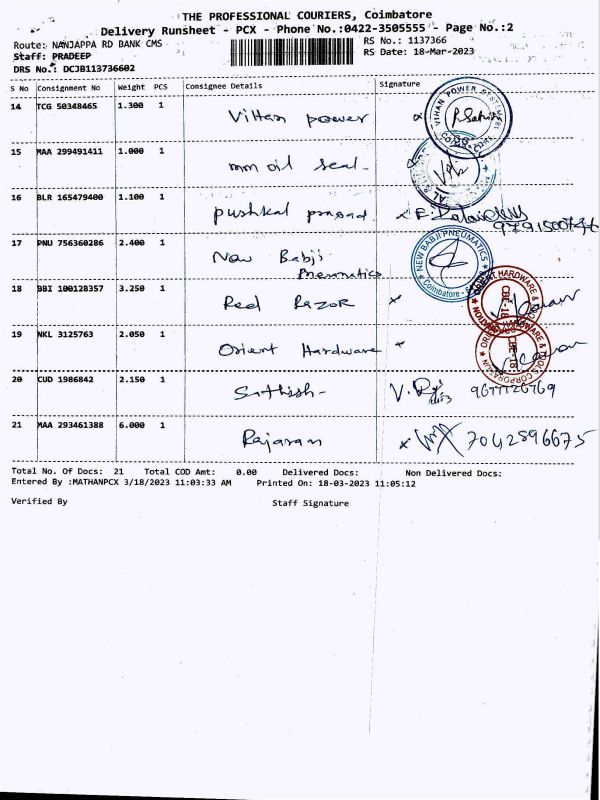 THE PROFESSIONAL COURIERS, Coimbatore
Delivery Runsheet - PCX - Phone No.:0422-3505555 - Page No.:2
Route: NANJAPPA RD BANK CMS
RS No.: 1137366
Staff: PRADEEP
RS Date: 18-Mar-2023
DRS No.: DCJB113736602
S No Consignment No Weight PCS Consignee Details Signature
14 TCG 50348465 1.300 1 Vihan power
VIHAN POWER
15 MAA 299491411 1.000 1 mm oil seal
16 BLR 165479400 1.100 1 pushkal prasad
17 PNU 756360286 2.400 1 New Babji
Pneumatics
NEW BABJI PNEUMATICS
Coimbatore
18 BBI 100128357 3.250 1 Red Razor
HARDWARE &
CBE-18
19 NKL 3125763 2.050 1 Orient Hardware
HARDWARE & TOOLS CORPORATION
CBE-18
20 CUD 1986842 2.150 1 Sathish
21 MAA 293461388 6.000 1 Rajaram 7042896675
Total No. Of Docs: 21 Total COD Amt: 0.00 Delivered Docs: Non Delivered Docs:
Entered By :MATHANPCX 3/18/2023 11:03:33 AM Printed On: 18-03-2023 11:05:12
Verified By Staff Signature